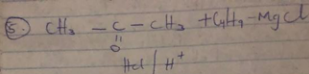 5. CH₃ - C - CH₃ + C₄H₉ - MgCl
||
O
HCl / H⁺